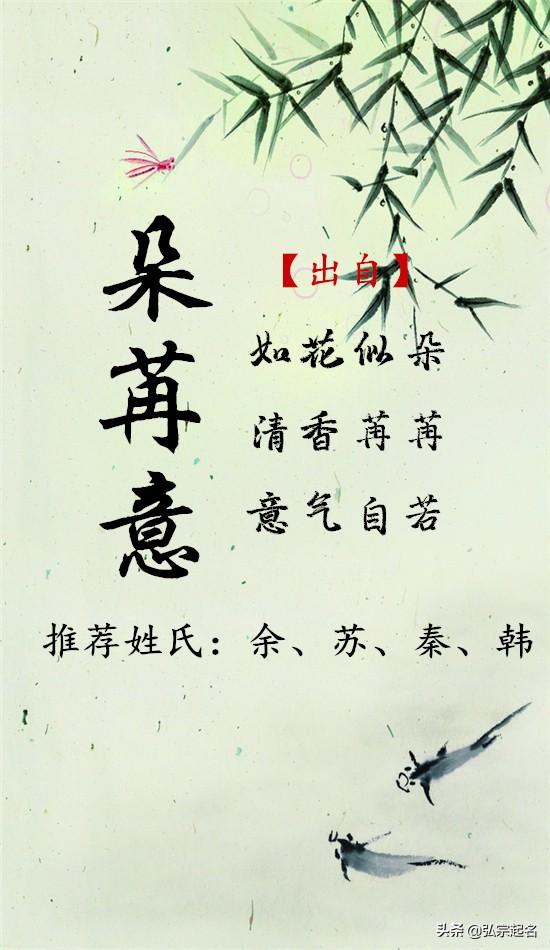 朵苒意
【出自】
如花似朵
清香苒苒
意气自若
推荐姓氏：余、苏、秦、韩
头条 @弘宗起名